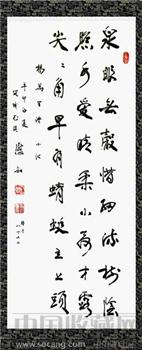 泉眼無聲惜細流樹陰
照水愛晴柔小荷才露
尖〻角早有蜻蜓立上頭
楊萬里詩 小池
中国收藏网
www.socang.com